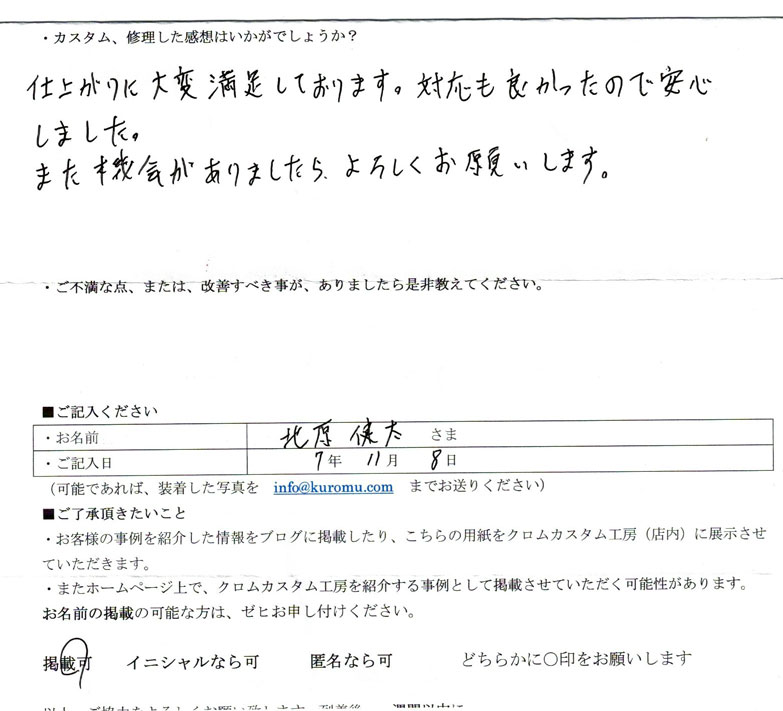 ・カスタム、修理した感想はいかがでしょうか？
仕上がりに大変満足しております。対応も良かったので安心
しました。
また機会がありましたら、よろしくお願いします。
・ご不満な点、または、改善すべき事が、ありましたら是非教えてください。
■ご記入ください
・お名前 北原 健太 さま
・ご記入日 7年 11月 8日
（可能であれば、装着した写真を info@kuromu.com までお送りください）
■ご了承頂きたいこと
・お客様の事例を紹介した情報をブログに掲載したり、こちらの用紙をクロムカスタム工房（店内）に展示させ
ていただきます。
・またホームページ上で、クロムカスタム工房を紹介する事例として掲載させていただく可能性があります。
お名前の掲載の可能な方は、ゼヒお申し付けください。
掲載可 イニシャルなら可 匿名なら可 どちらかに〇印をお願いします